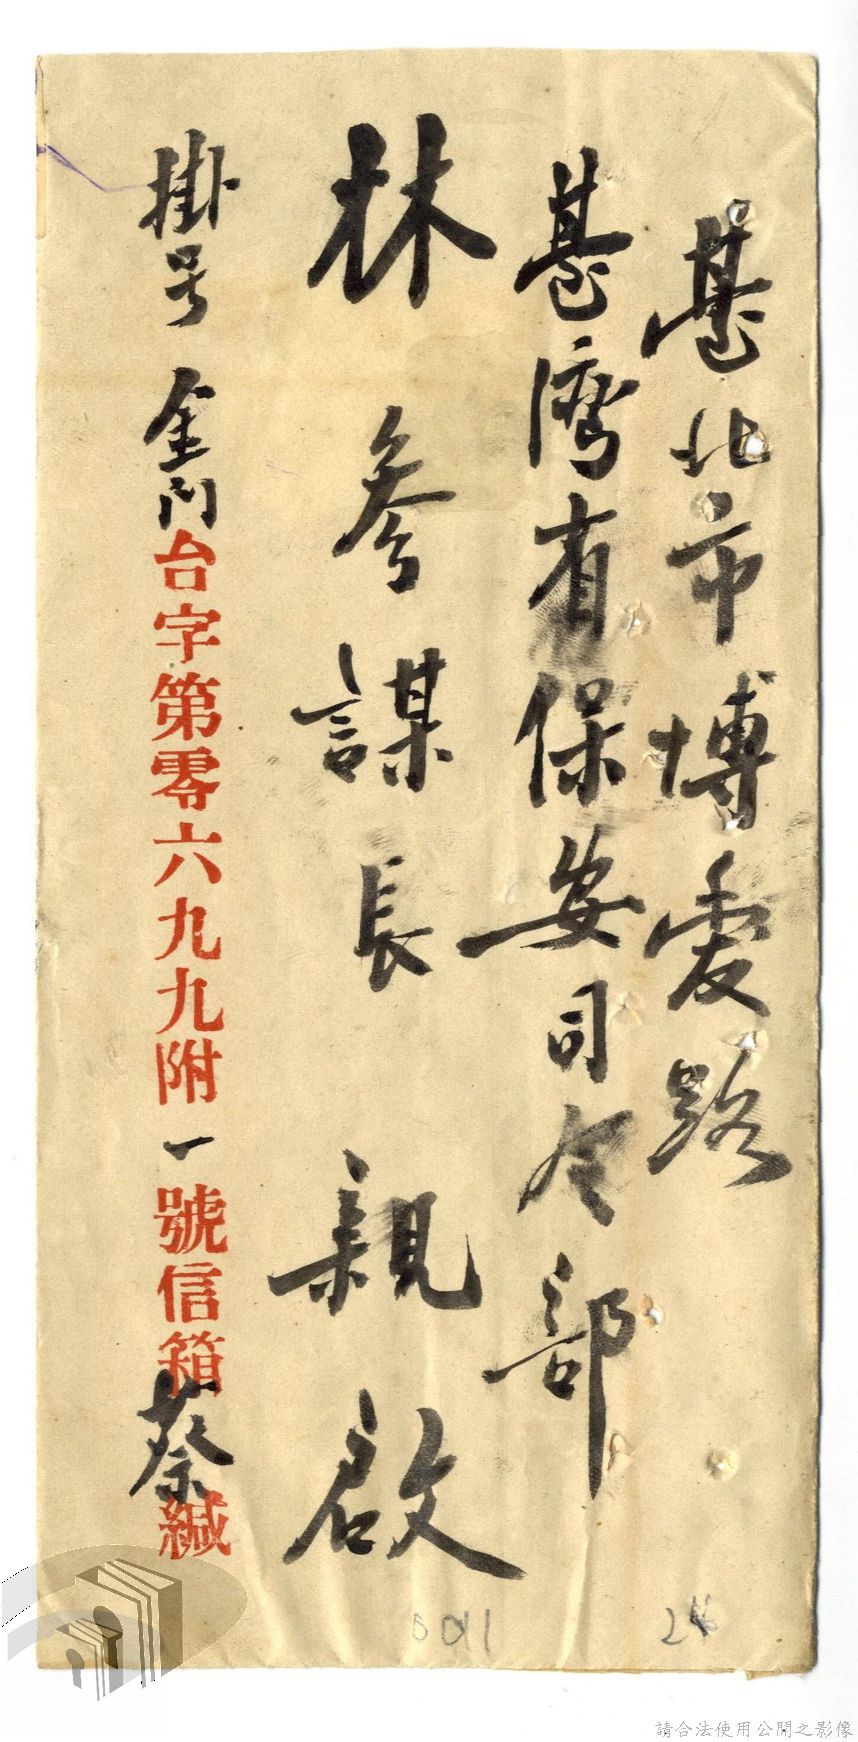 臺北市博愛路
臺湾省保安司令部
林參謀長 親啟
掛号 金门台字第零六九九附一號信箱蔡緘
B011
24
請合法使用公開之影像